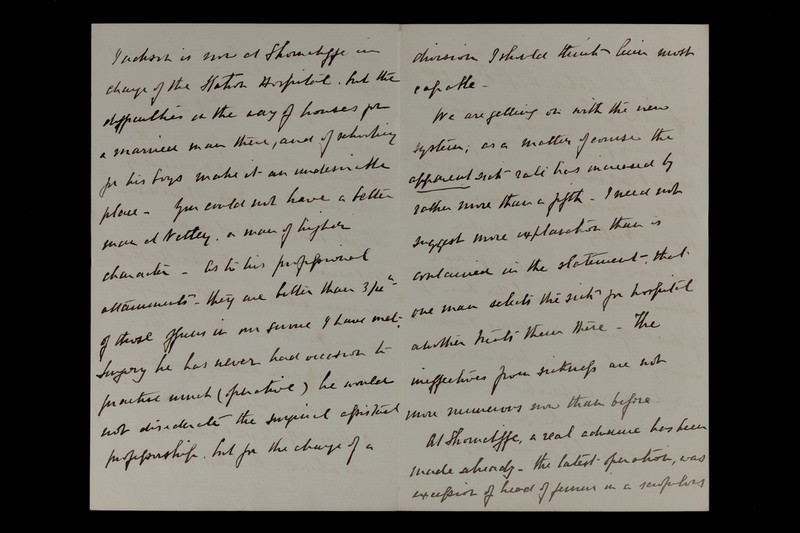 Jackson is now at Shorncliffe in
charge of the Station Hospital. but the
difficulties in the way of houses for
a married man there, and of schooling
for his boys make it an undesirable
place - You could not have a better
man at Netley. a man of higher
character - As to his professional
attainments - they are better than 3/4
of those officers in our service I have met.
Surgery he has never had occasion to
practise much (operative) he would
not desiderate the surgical assistant
professorship. but for the charge of a
division I should think him most
capable -
We are getting on with the new
system; as a matter of course the
apparent sick rate has increased by
rather more than a fifth - I need not
suggest more explanation than is
contained in the statement, that
one man selects the sick for hospital
another treats them there - The
ineffectives from sickness are not
more numerous now than before
At Shorncliffe, a real advance has been
made already - the latest operation, was
excission of head of femur in a scrofulous